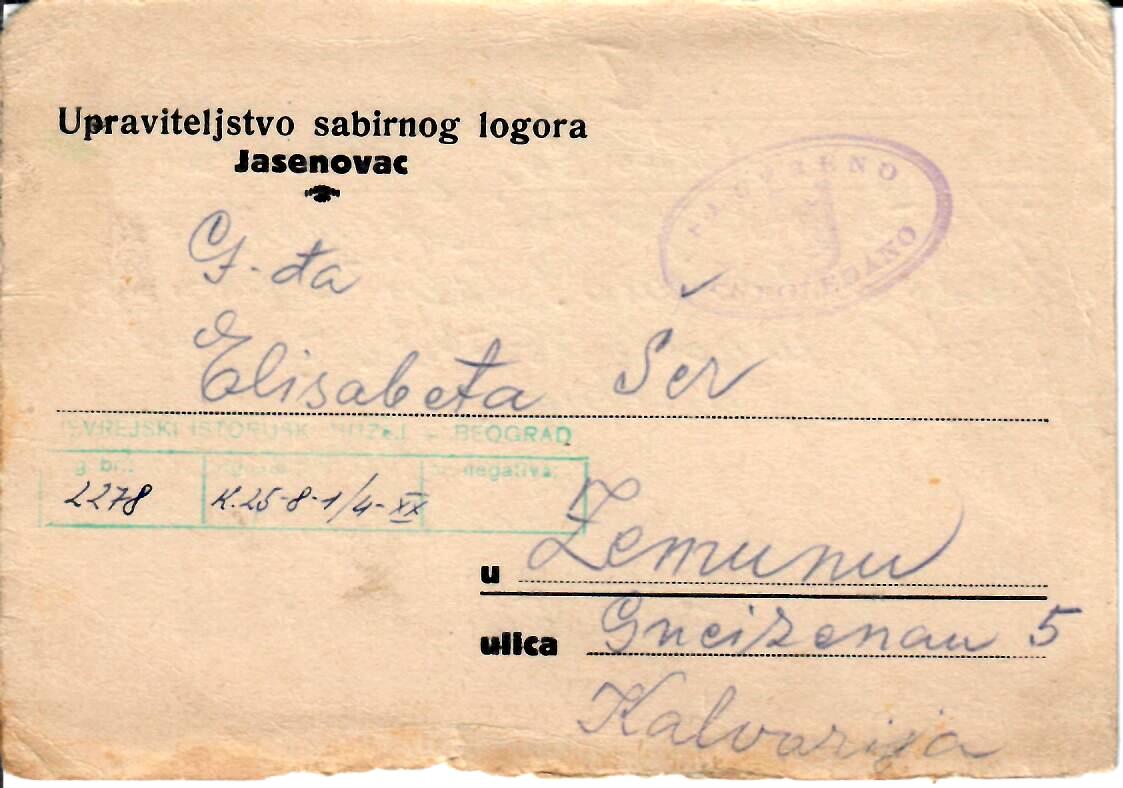 Upraviteljstvo sabirnog logora
Jasenovac
G-đa
Elisabeta Šer
JEVREJSKI ISTORIJSKI MUZEJ – BEOGRAD
negativa:
2278 K.25-8-1/4-XX
u Zemunu
ulica Gneizenau 5
Kalvarija